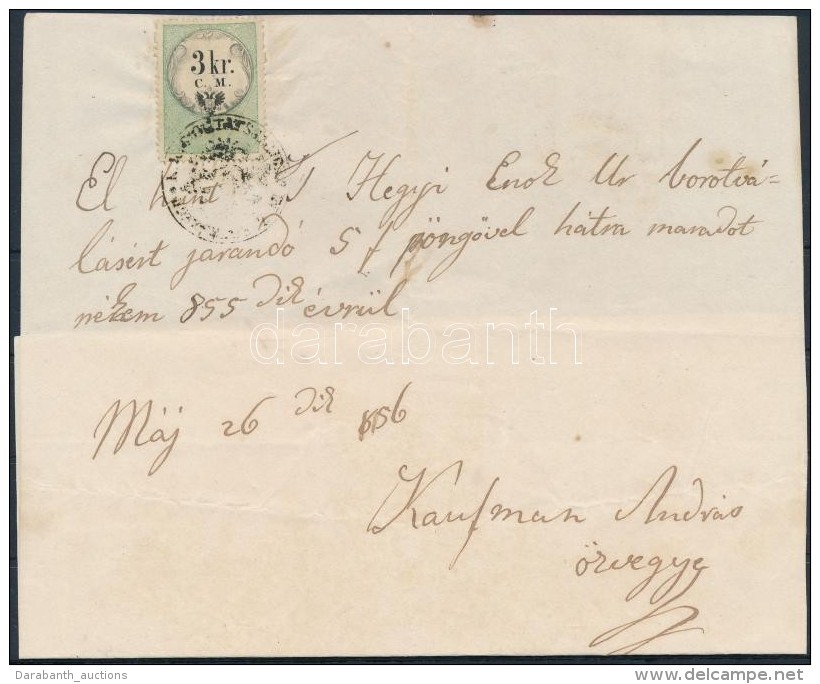 3 kr.
C. M.
El hunt Hegyi Enok Ur borotvá-
lásért járandó 5 f pöngövel hátra maradot
nékem 855 dik évrül
darabanth
Máj 26 dik 856
Kaufman András
özvegye
Darabanth_auctions
www.delcampe.net